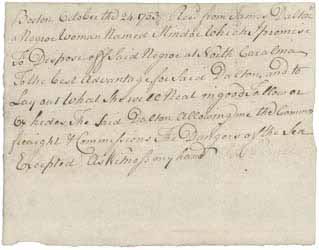 Boston October the 24 1753 Recd. from James Dalton
a Negroe Woman Named Which I promese
To Despose off Said Negroe at South Carolina
To the best Advantage for Said Dalton, and to
Lay out What She will Neat in good
hides, the Said Dalton Allowing me the Common
freaight & Commissions The Dangers of the Sea
Excepted As Witness my hand